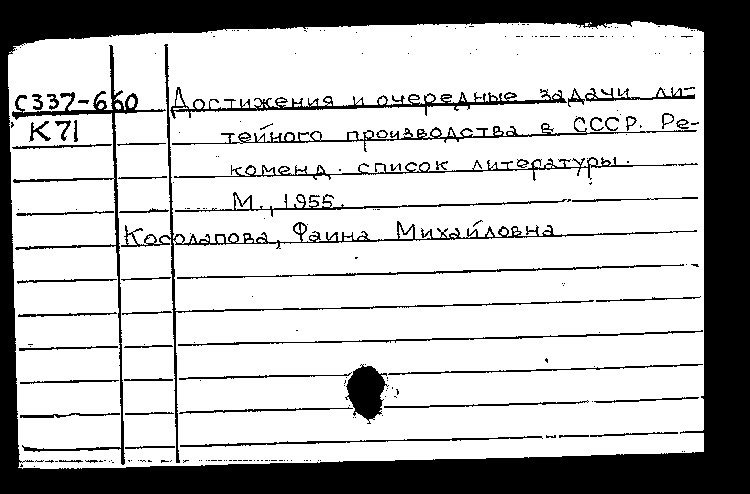 С337-660 Достижения и очередные задачи ли-
К71 тейного производства в СССР. Ре-
коменд. список литературы.
М., 1955.
Косолапова, Фаина Михайловна